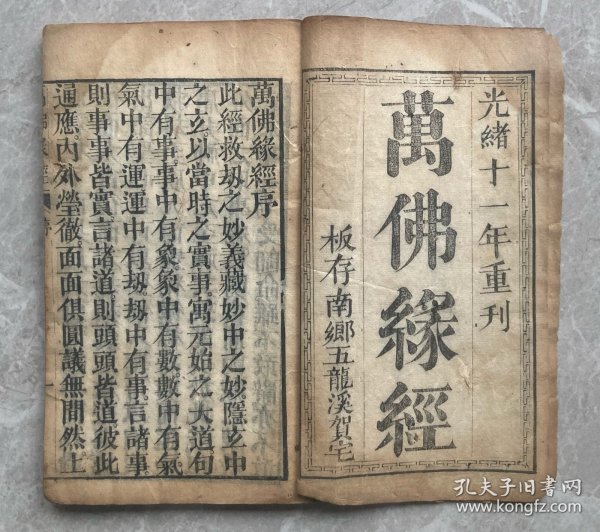 光緒十一年重刊
萬佛緣經
板存南鄉五龍溪賀宅
萬佛緣經序
此經救劫之妙義藏妙中之妙隱玄中
之玄以當時之實事寓元始之大道句
中有事事中有象象中有數數中有氣
氣中有運運中有劫劫中有事言諸事
則事事皆實言諸道則頭頭皆道彼此
通應內外瑩徹面面俱圓議無間然上
孔夫子旧书网
www.kongfz.com